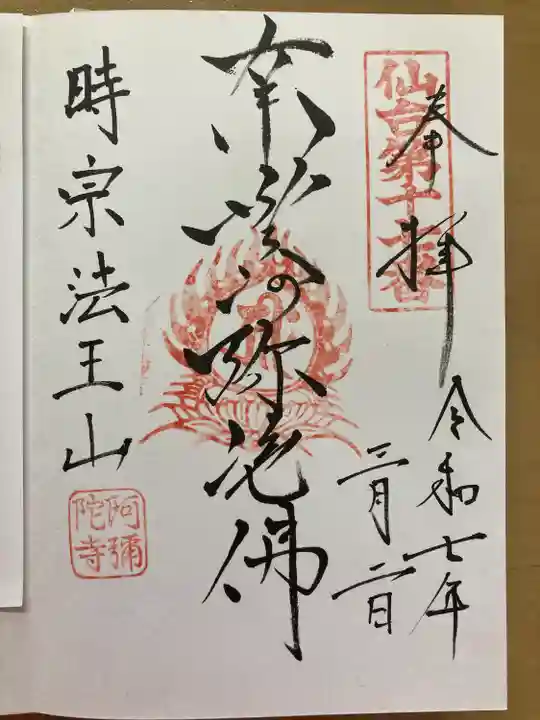 奉拝
仙台第十
番
令和七年
三月二日
南無阿弥陀佛
時宗法王山
阿彌
陀寺